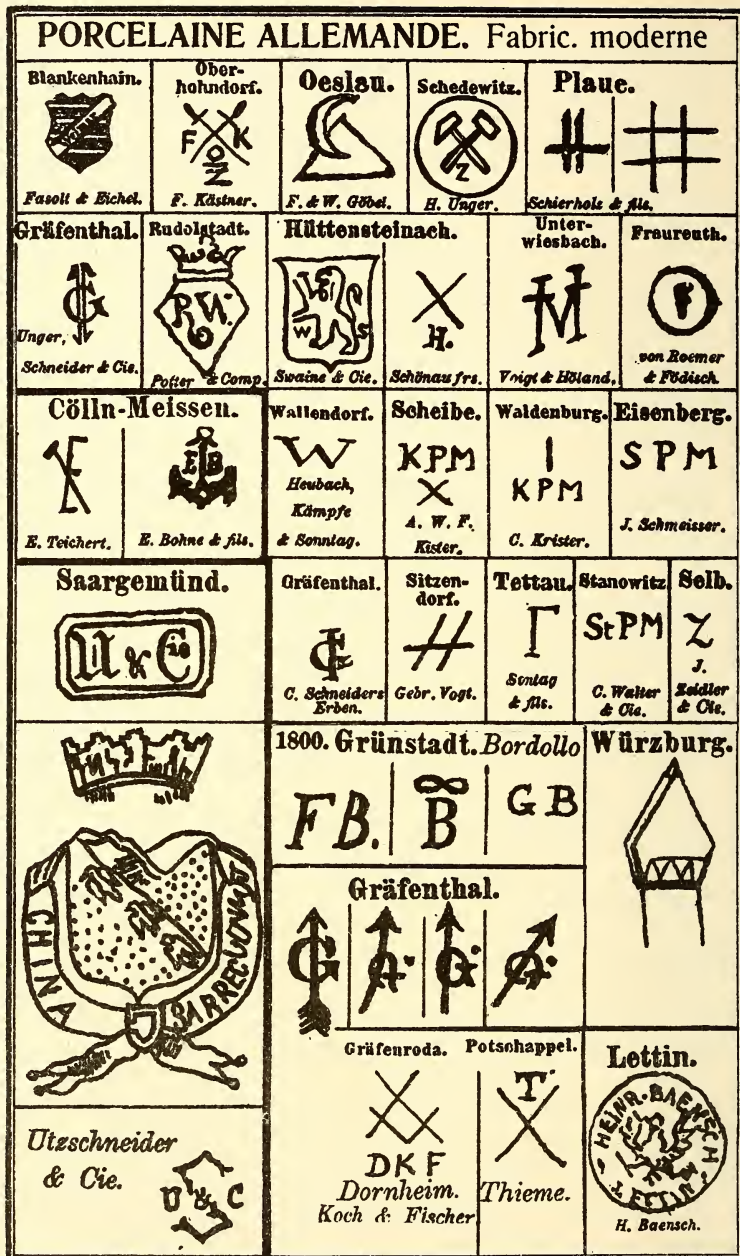 PORCELAINE ALLEMANDE. Fabric. moderne
Blankenhain.
Fasolt & Eichel.
Ober-
hohndorf.
F K
O
Z
F. Kästner.
Oeslau.
F. & W. Göbel.
Schedewitz.
Z
H. Unger.
Plaue.
Schierholz & fils.
Gräfenthal.
G
Unger,
Schneider & Cie.
Rudolstadt.
RW.
Potter & Comp.
Hüttensteinach.
W S
Swaine & Cie.
H.
Schönau frs.
Unter-
wiesbach.
Voigt & Höland.
Fraureuth.
F
von Roemer
& Födisch
Cölln-Meissen.
E. Teichert.
E B
E. Bohne & fils.
Wallendorf.
W
Heubach,
Kämpfe
& Sonntag.
Scheibe.
KPM
X
A. W. F.
Kister.
Waldenburg.
I
KPM
C. Krister.
Eisenberg.
S P M
J. Schmeisser.
Saargemünd.
U & Cie
Gräfenthal.
C. Schneiders
Erben.
Sitzen-
dorf.
Gebr. Vogt.
Tettau.
Γ
Sontag
& fils.
Stanowitz
StPM
C. Walter
& Cie.
Selb.
Z
J.
Zeidler
& Cie.
CHINA
1800. Grünstadt. Bordollo
FB.
B
GB
Würzburg.
Gräfenthal.
G
Utzschneider
& Cie.
U & C
Gräfenroda.
DKF
Dornheim.
Koch & Fischer
Potschappel.
T
Thieme.
Lettin.
HEINR. BAENSCH
LETTIN
H. Baensch.